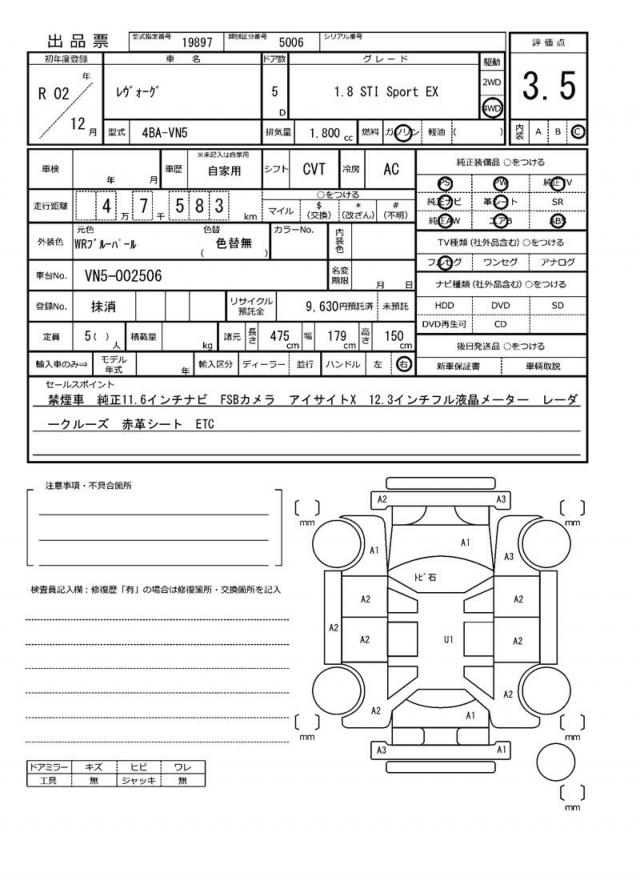 出品票 型式指定番号 19897 類別区分番号 5006 シリアル番号
評価点
3.5
内装 A B C
初年度登録 車名 ドア数 グレード 駆動
R 02 年 12 月 レヴォーグ 5 D 1.8 STI Sport EX 2WD 4WD
型式 4BA-VN5 排気量 1.800 cc 燃料 ガソリン 軽油 ( )
車検 年 月 車歴 ※未記入は自家用 自家用 シフト CVT 冷房 AC
走行距離 4 万 7 千 5 8 3 km ○をつける
マイル $ (交換) * (改ざん) # (不明)
外装色 元色 WRブルーパール 色替 色替無 ( ) カラーNo. 内装色
車台No. VN5-002506 名変期限 月 日
登録No. 抹消 リサイクル預託金 9,630円預託済 未預託
定員 5( ) 人 積載量 kg 諸元 長さ 475 cm 幅 179 cm 高さ 150 cm
輸入車のみ⇒ モデル年式 年 輸入区分 ディーラー 並行 ハンドル 左 右
純正装備品 ○をつける
PS PW 純正TV
純正ナビ 革シート SR
純正AW エアB ABS
TV種類 (社外品含む) ○をつける
フルセグ ワンセグ アナログ
ナビ種類 (社外品含む) ○をつける
HDD DVD SD
DVD再生可 CD
後日発送品 ○をつける
新車保証書 車輌取説
セールスポイント
禁煙車 純正11.6インチナビ FSBカメラ アイサイトX 12.3インチフル液晶メーター レーダ
ークルーズ 赤革シート ETC
注意事項・不具合箇所
検査員記入欄：修復歴「有」の場合は修復箇所・交換箇所を記入
ドアミラー キズ ヒビ ワレ
工具 無 ジャッキ 無
A2 A3
[ ] mm [ ] mm
A1 A1 A3
トビ石
A2 A2
A2 A2 U1 A2
A2 A2
A1
[ ] mm [ ] mm
A3 A1
[ ] mm